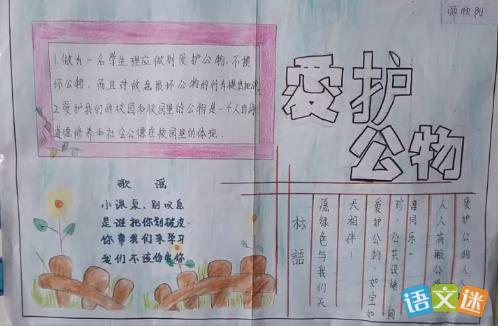 爱护
公物
1.做为一名学生理应做到爱护公物,不损
坏公物,而且对故意损坏公物的行为提出批评
2.爱护我们的校园和校园里的公物是一个人自身
道德修养和社会公德在校园里的体现.
歌 谣
小课桌,别叹息
是谁把你划破皮
你帮我们来学习
我们不该伤害你
标语
爱护公物人
人人有
喜同乐。
珍公共设施
爱护公物,如
大相伴!
愿绿色与我们天
语文迷